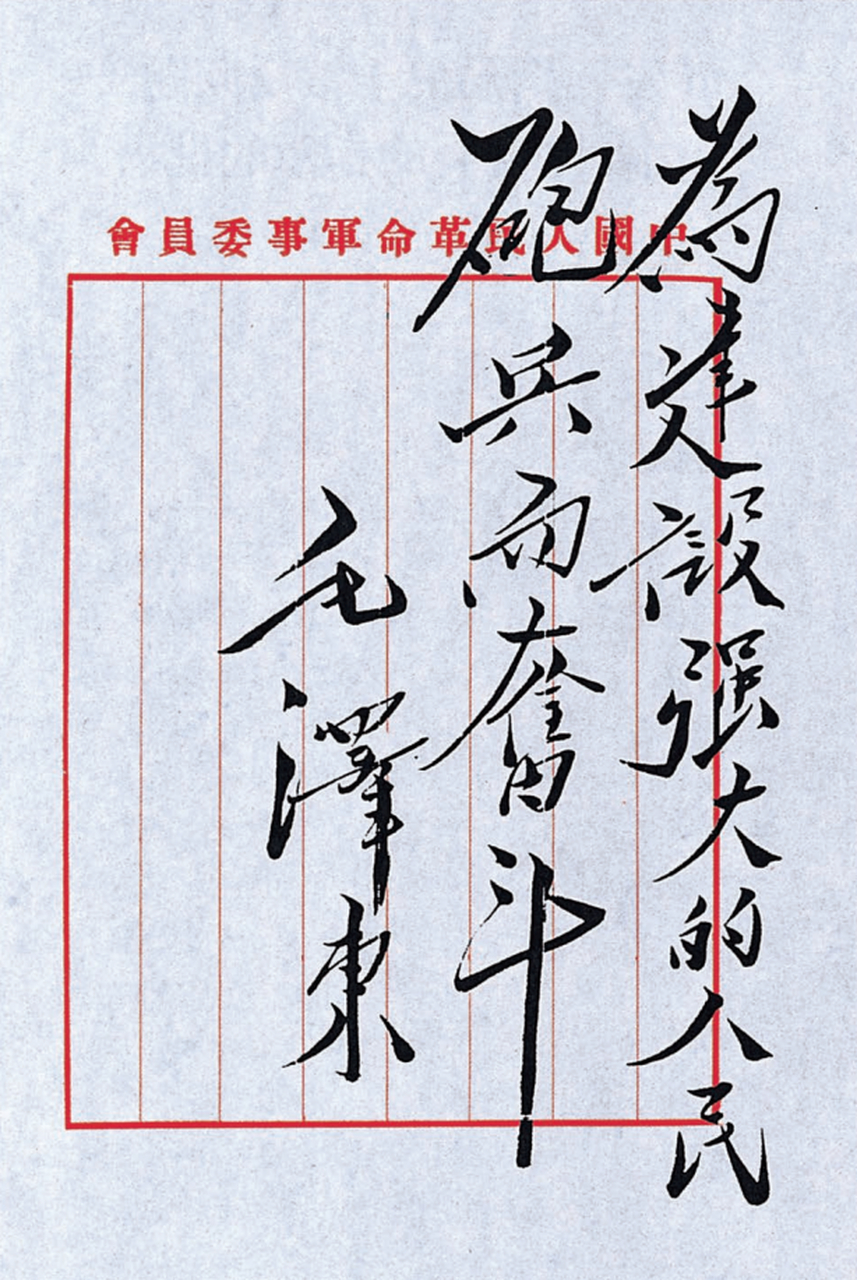 中國人民革命軍事委員會
為建設强大的人民
砲兵而奮斗
毛澤東